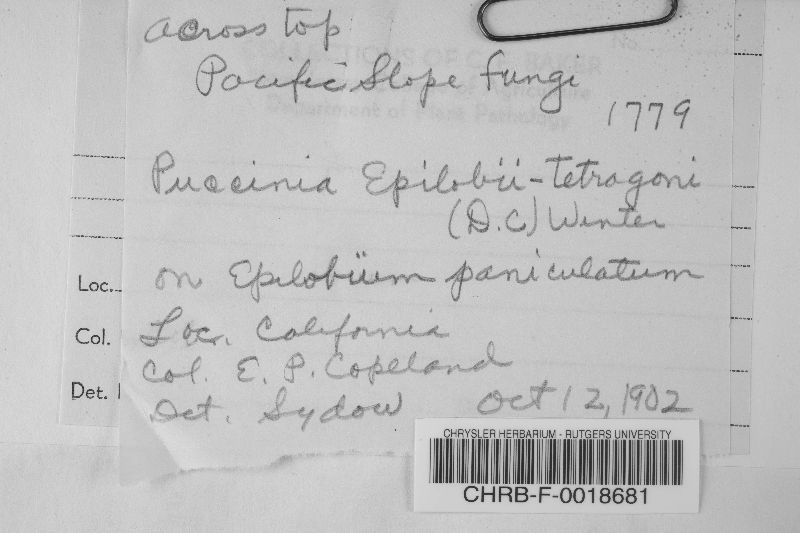 across top
No.
COLLECTIONS OF C. F. BAKER
Pacific Slope Fungi
Department of Plant Pathology
1779
Puccinia Epilobii-tetragoni
(D.C.) Winter
on Epilobium paniculatum
Loc.
Loc. California
Col.
Col. E. P. Copeland
Det.
Det. Sydow Oct 12, 1902
CHRYSLER HERBARIUM - RUTGERS UNIVERSITY
CHRB-F-0018681